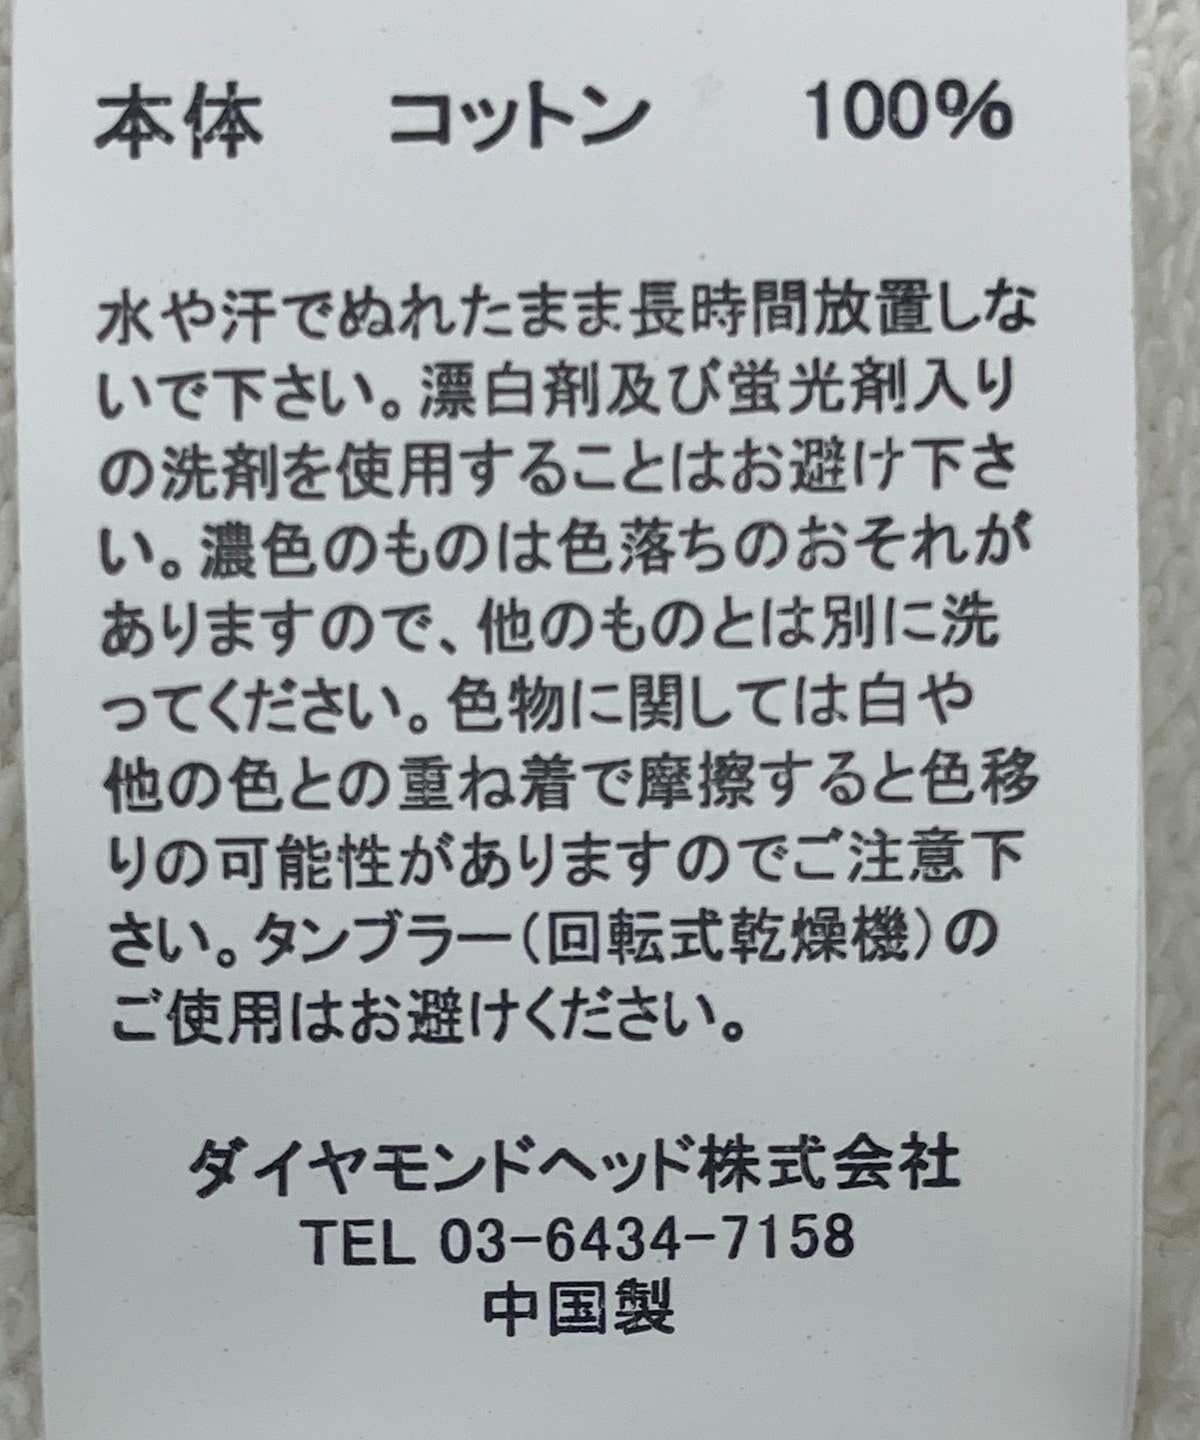 本体 コットン 100%
水や汗でぬれたまま長時間放置しな
いで下さい。漂白剤及び蛍光剤入り
の洗剤を使用することはお避け下さ
い。濃色のものは色落ちのおそれが
ありますので、他のものとは別に洗
ってください。色物に関しては白や
他の色との重ね着で摩擦すると色移
りの可能性がありますのでご注意下
さい。タンブラー(回転式乾燥機)の
ご使用はお避けください。
ダイヤモンドヘッド株式会社
TEL 03-6434-7158
中国製